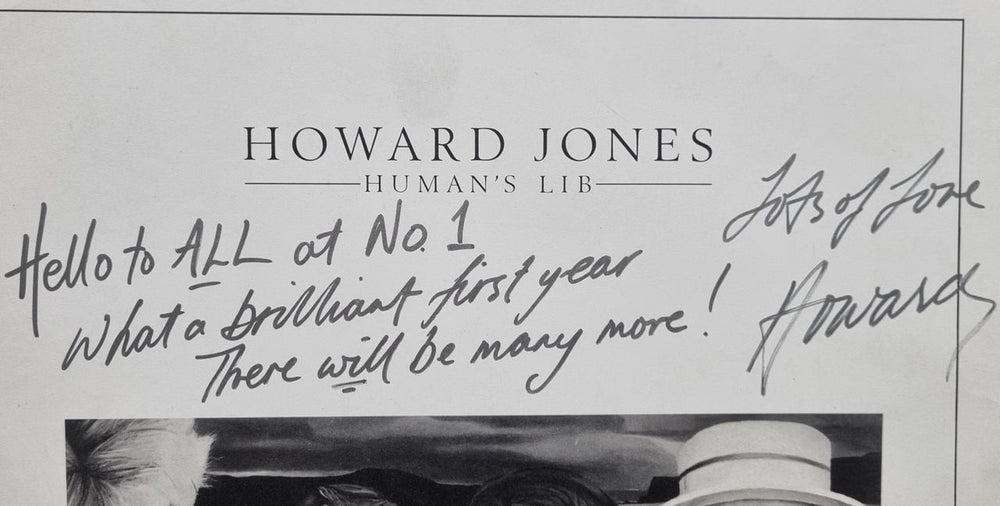 HOWARD JONES
HUMAN'S LIB
Hello to ALL at No. 1
What a brilliant first year
There will be many more!
Lots of Love
Howard